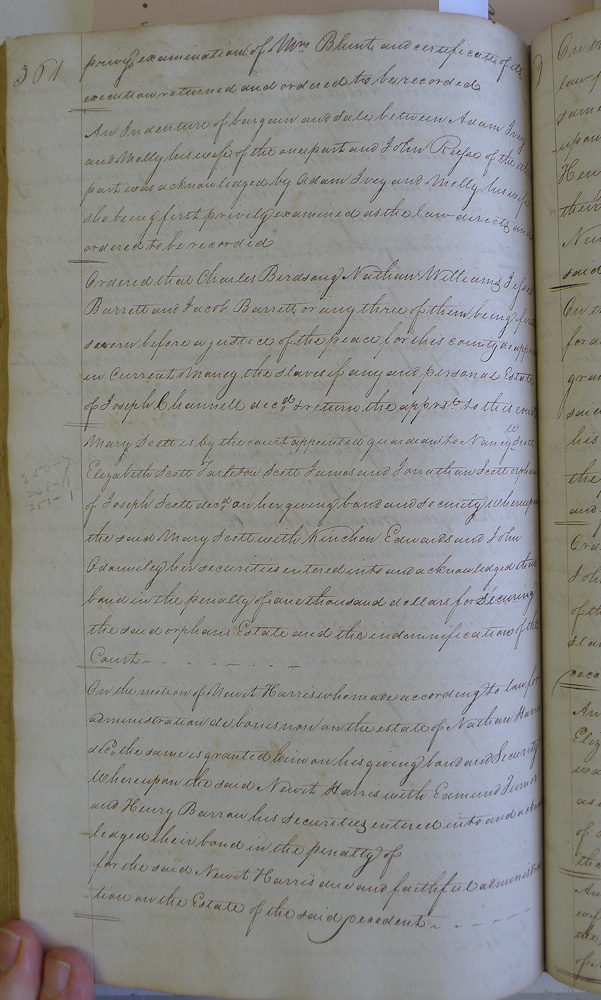 361
privy examination of Mrs Blunt and certificate of its
execution returned and ordered to be recorded
An Indenture of bargain and sale between Adam Ivey
and Molly his wife of the one part and John Reese of the
part was acknowledged by Adam Ivey and Molly his wife
she being first privily examined as the law directs and
ordered to be recorded
Ordered that Charles Birdsong Nathan Williams
Barrett and Jacob Barrett or any three of them being first
sworn before a justice of the peace for this county do
in Current Money the slaves if any and personal Estate
of Joseph Channell decd. & return the apprst. to this court
Mary Scott is by the court appointed guardian to Nancy Scott
Elizabeth Scott Tarleton Scott James and Jonathan Scott orphans
of Joseph Scott decd. on her giving bond and security Whereupon
the said Mary Scott with Kinchen Edwards and John
her securities entered into and acknowledged their
bond in the penalty of one thousand dollars for securing
the said orphans Estate and the indemnification of the
Court
On the motion of Newit Harris who made according to law for
administration de bonis non on the estate of Nathan Harris
decd. the same is granted him on his giving bond and Security
Whereupon the said Newit Harris with Edmund Turner
and Henry Barrow his securities entered into and acknow
ledged their bond in the penalty of
for the said Newit Harris due and faithful administra
tion on the Estate of the said decedent